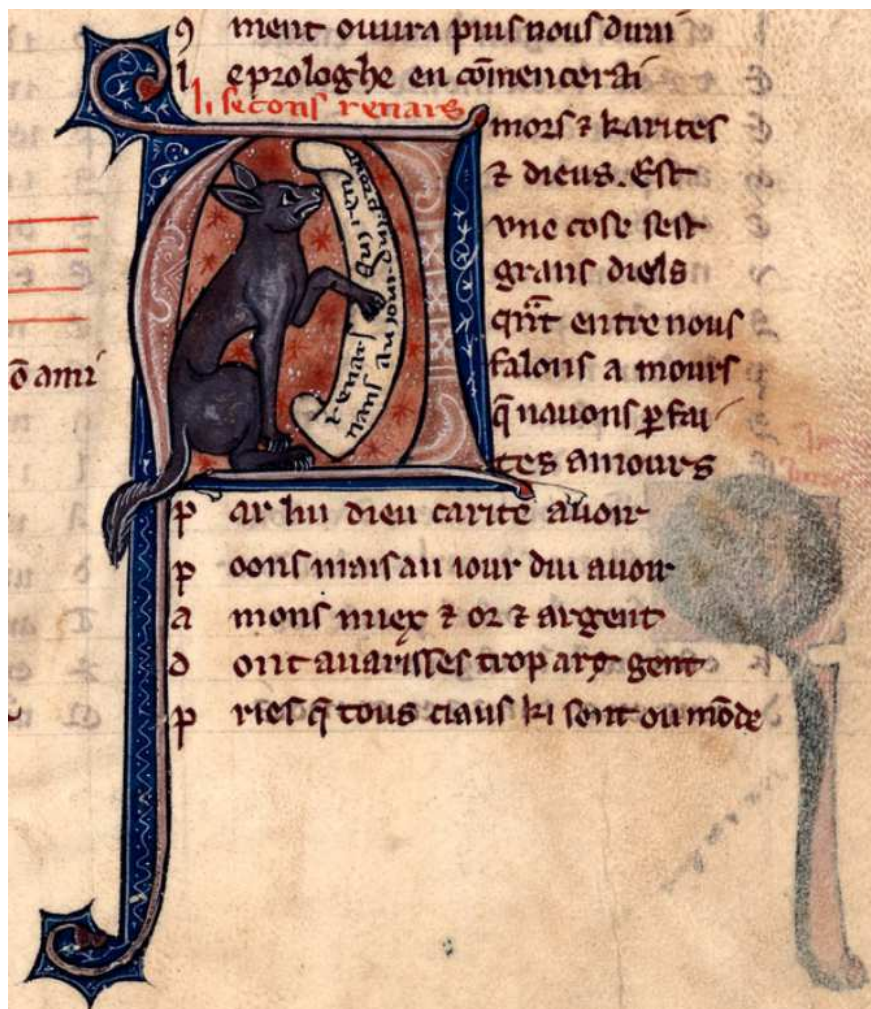 ꝯ ment ouura puis nous dirai
l e prologhe en cõmencerai
li secons renars
A mors ⁊ karites
⁊ dieus. Est
vne cose sest
grans diels
qñt entre nous
falons a mours
q̃ nauons ꝑfai
tes amours
p ar lui dieu carite auoir
p oons mais au iour dui auoir
a mons miex ⁊ or ⁊ argent
d ont auarisses trop art gent
p ries q̃ tous ciaus ki sont ou mõde
õ ami
renars
nans au jour